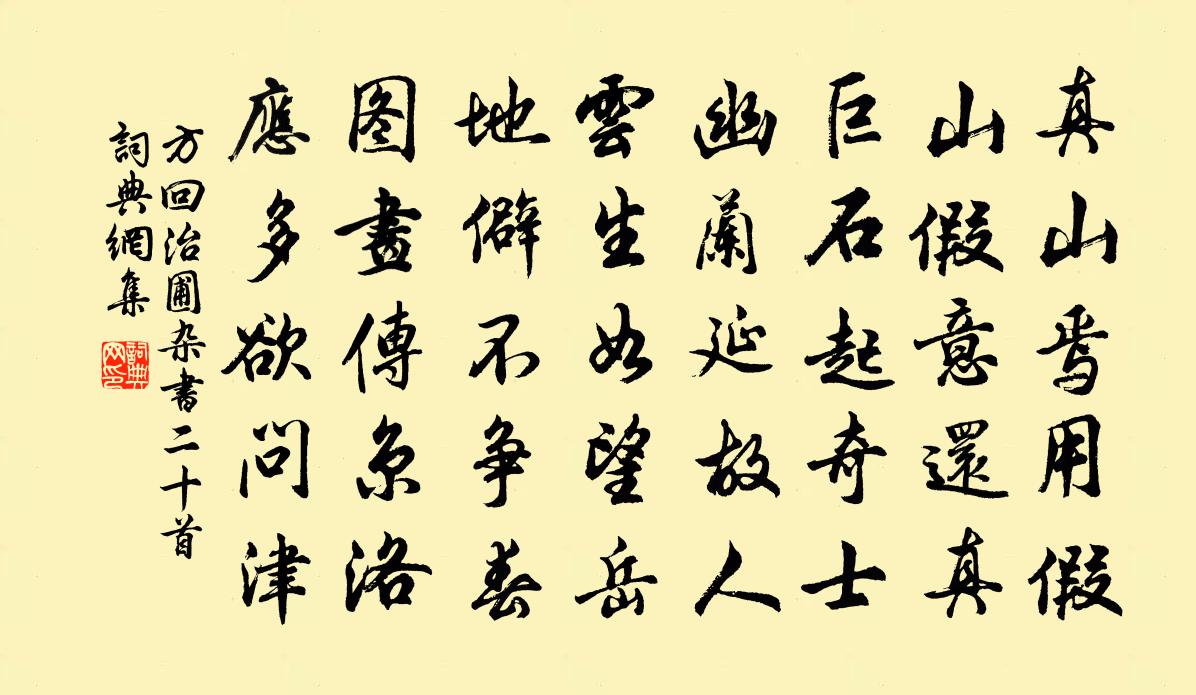 真山焉用假
山假意還真
巨石起奇士
幽蘭延故人
雲生如望岳
地僻不争春
图畫傳京洛
應多欲問津
方回治圃杂書二十首
詞典網集
詞典网印